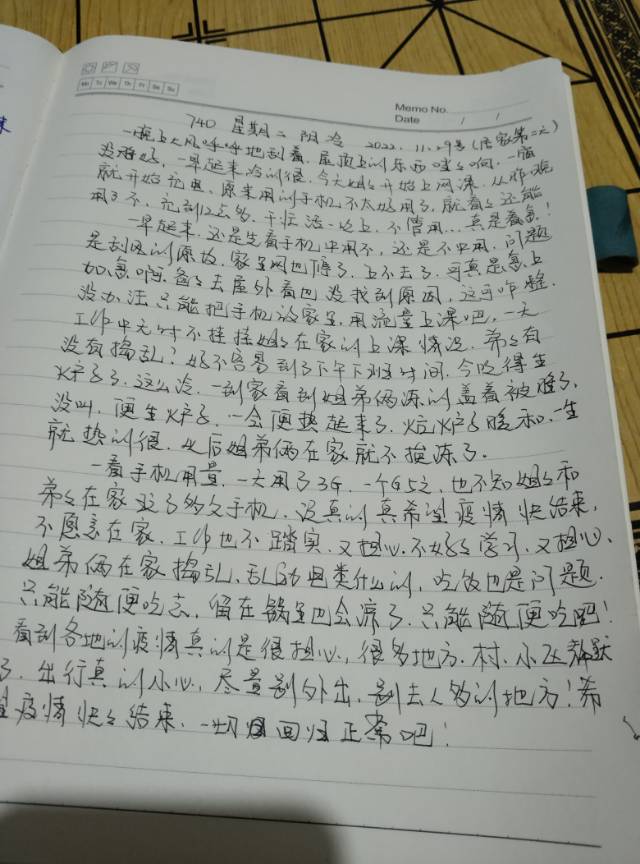 Mo Tu We Th Fr Sa Su
Memo No.
Date / /
740 星期二 阴冷 2022.11.29号(居家第二天)
一晚上大风呼呼地刮着,屋顶上的东西哇哇响,一宿
没睡好,一早起来冷的很,今天姐姐开始上网课,从昨晚
就开始充电,原来用的手机不太好用了,就看看还能
用了不,充到12点多,干忙活一晚上,不管用…真是着急!
一早起来,还是先看手机中用不,还是不中用,问题
是刮风的原故,家里网也停了,上不去了,可真是急上
加急啊。爸爸去屋外看也没找到原因,这可咋整,
没办法只能把手机放家里,用流量上课吧,一天
工作中无时不挂挂姐姐在家的上课情况,弟弟有
没有捣乱?好不容易到了下午下班时间,今晚得生
火炉子了,这么冷,一到家看到姐弟俩冻的盖着被睡了,
没叫,便生火炉子,一会便热起来了,火炉子暖和,一生
就热的很,以后姐弟俩在家就不挨冻了。
一看手机用量,一天用了3G,一个G5元,也不知姐姐和
弟弟在家玩了多久手机,没真的真希望疫情快结束,
不愿意在家,工作也不踏实,又担心不好好学习,又担心,
姐弟俩在家捣乱,乱动电类什么的,吃饭也是问题.
只能随便吃点,留在锅里也会凉了,只能随便吃吧!
看到各地的疫情真的是很担心,很多地方,村、小区都
了,出行真的小心,尽量别外出,别去人多的地方!希
望疫情快快结束,一切回归正常吧!